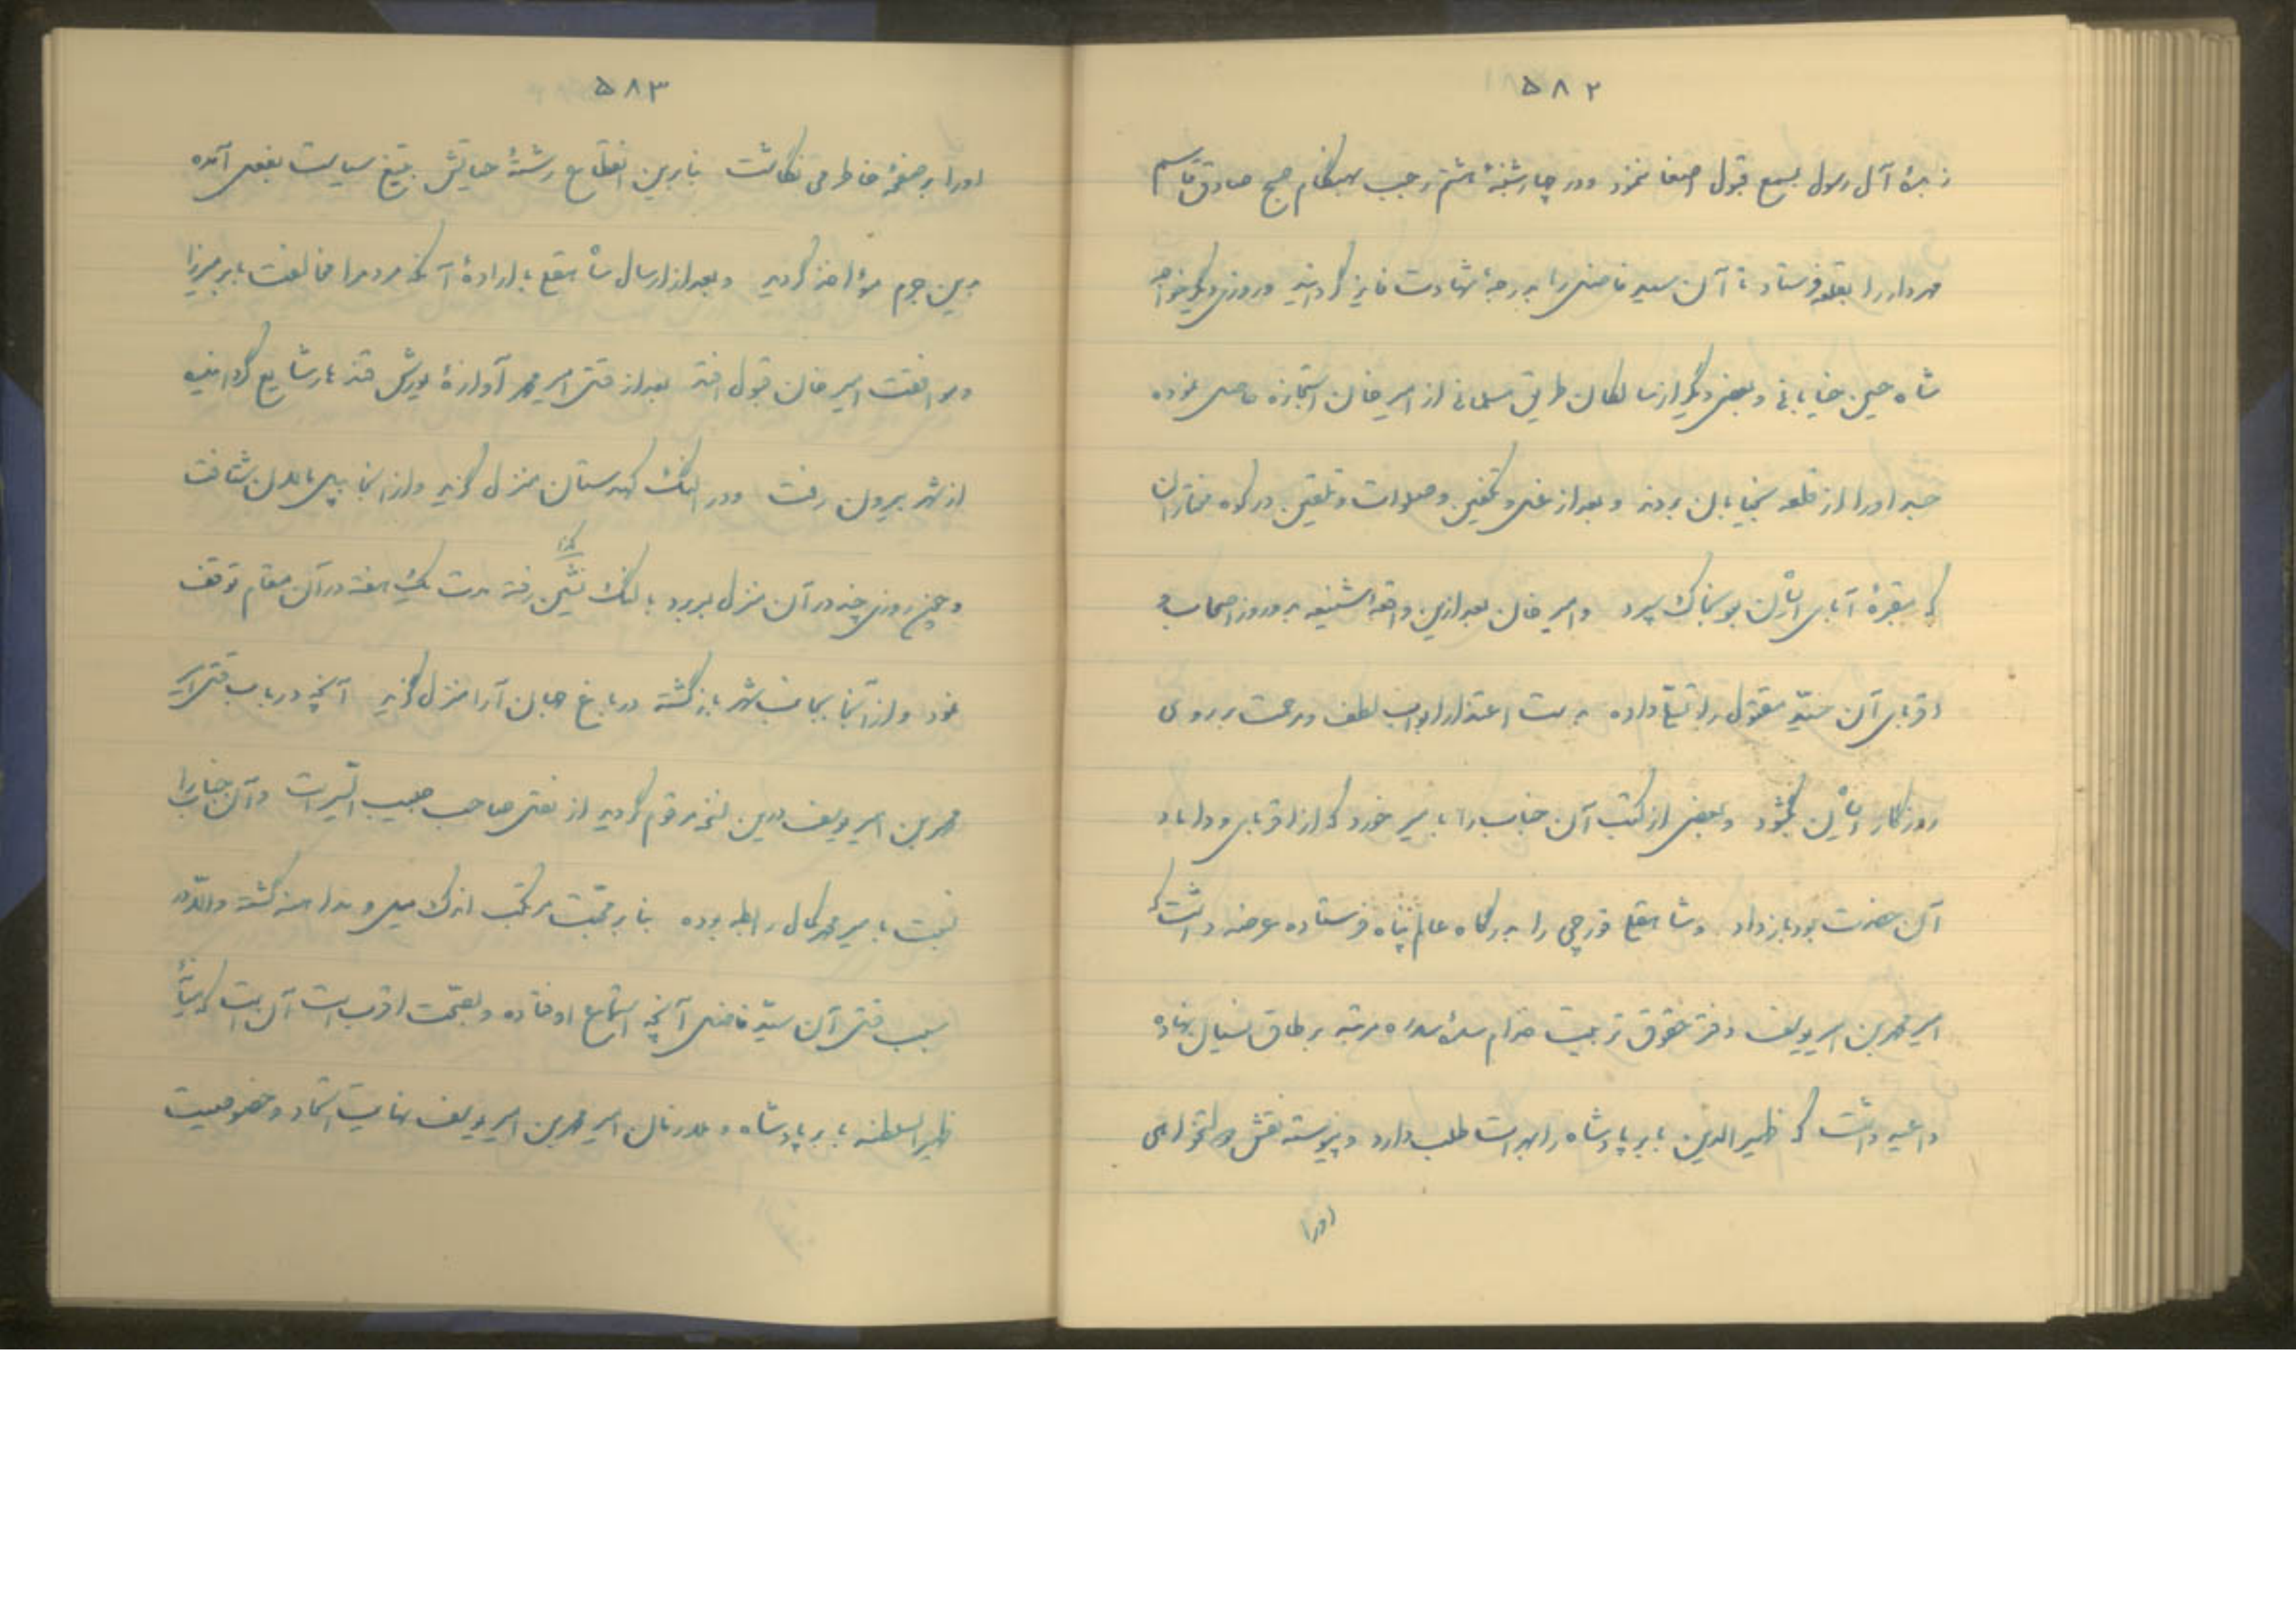 ۵۸۲
زبدهٔ آل رسول بسمع قبول اصغا ننمود و در چهارشنبهٔ هشتم رجب بهنگام صبح صادق قاسم
مهردار را بقلعه فرستاد تا آن سید فاضل را بدرجهٔ شهادت فایز گردانید و روزی دیگر خواجه
شاه حسین خیابانی و بعضی دیگر از سالکان طریق مسلمانی از امیر خان استجازه حاصل نموده
جسد او را از قلعه بخیابان بردند و بعد از غسل و تکفین و صلوات و تلقین در کوه مختاران
که مقبرهٔ آبای ایشان بود بخاک سپرد و امیر خان بعد ازین واقعه شنیعه بدو روز اصحاب و
اقربای آن سیّد مقتول را تسلّی داده بدست اعتذار ابواب لطف و مرحمت بر روی
روزگار ایشان بگشود و بعضی از کتب آن جناب را با میر خورد که از اقربای و داماد
آن حضرت بود باز داد و شاهقلی قورچی را بدرگاه عالم پناه فرستاده عرضه داشت که
امیر محمد بن امیر یوسف دفتر حقوق تربیت خدام سدهٔ سدره مرتبه بر طاق نسیان نهاده
داعیه داشت که ظهیر الدین بابر پادشاه را بهرات طلب دارد و پیوسته نقش دولتخواهی
او را
۵۸۳
او را بر صفحهٔ خاطر می نگاشت بنابرین انقطاع رشتهٔ حیاتش بتیغ سیاست بفعل آمده
بدین جرم مؤاخذ گردید و بعد از ارسال شاهقلی باراده آنکه مردم را مخالفت بابر میرزا
و موافقت امیر خان قبول افتد بعد از قتل امیر محمد آوازهٔ یورش قندهار شایع گردانیده
از شهر بیرون رفت و در النگ کهدستان منزل گزید و از آنجا بپل مالان شتافت
و چون روزی چند در آن منزل بسر برد بالنگ نشین رفته مدت یک هفته در آن مقام توقف
کذا
نمود و از آنجا بجانب شهر بازگشته در باغ جهان آرا منزل گزید آنچه در باب قتل امیر
محمد بن امیر یوسف درین نسخه مرقوم گردید از نقل صاحب حبیب السّیر است و آن جناب را
نسبت با میر محمد کمال رابطه بوده بنا بر محبّت مرتکب اندک میل و مداهنه گشته والّا در
سبب قتل آن سیّد فاضل آنچه استماع افتاده و بصحّت اقرب است آن است که میانهٔ
ظهیر السلطنه بابر پادشاه و غفران امیر محمد بن امیر یوسف نهایت اتحاد و خصوصیت